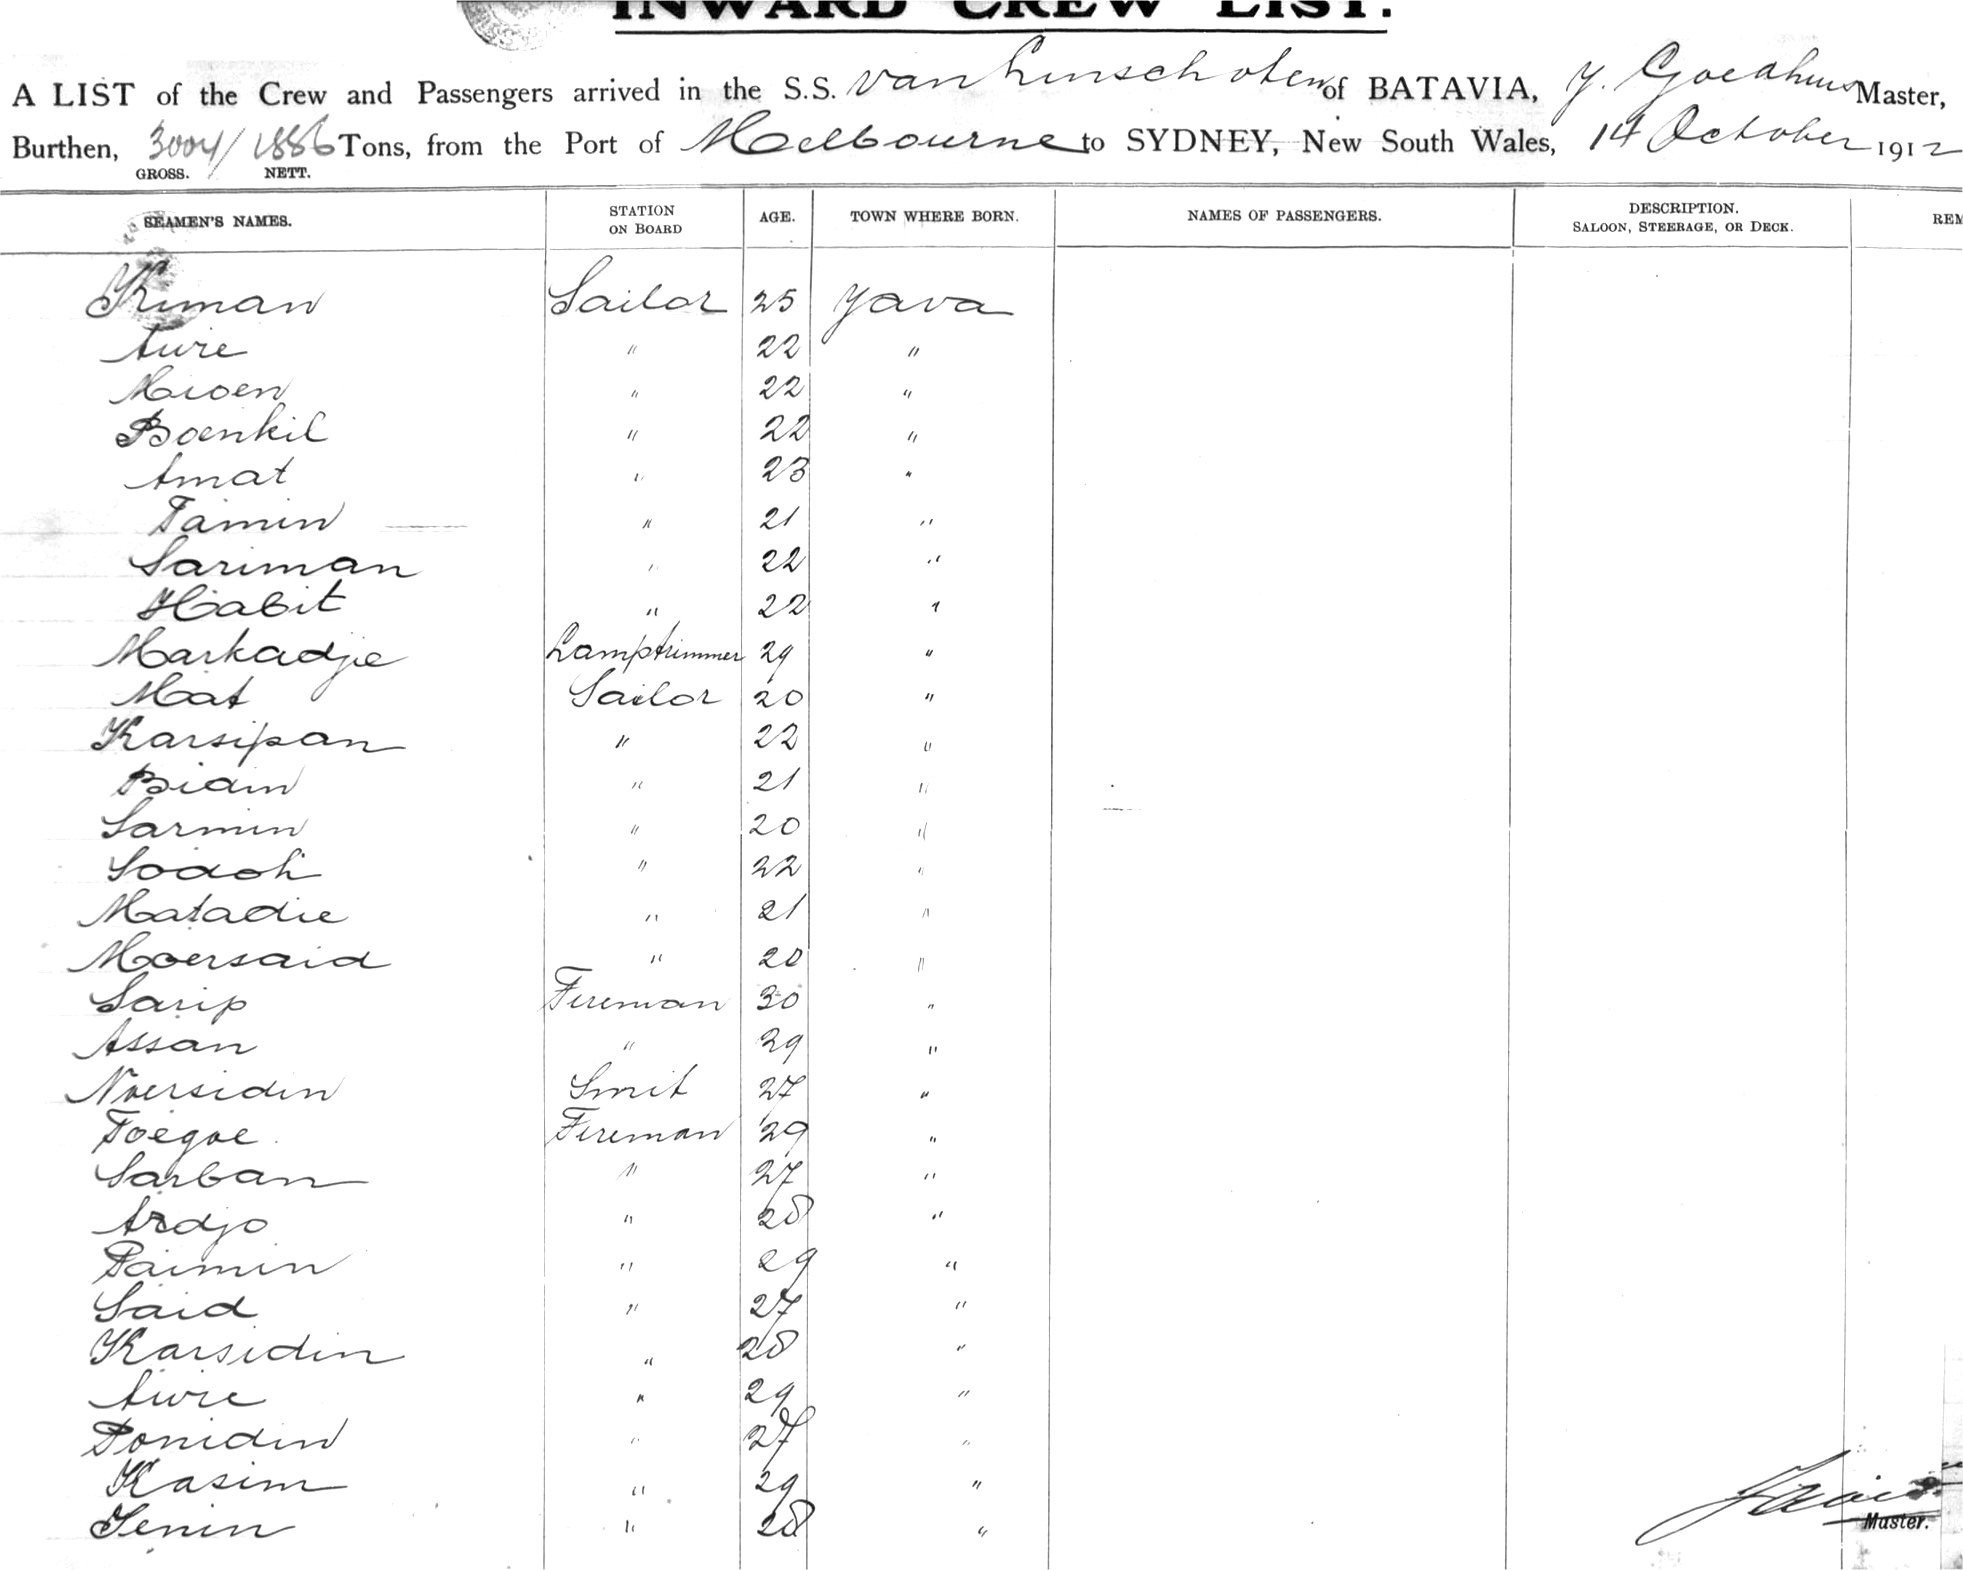 INWARD CREW LIST.
A LIST of the Crew and Passengers arrived in the S.S. van Linschoten of BATAVIA, Y. Goedhuis Master,
Burthen, 3004/1886 Tons, from the Port of Melbourne to SYDNEY, New South Wales, 14 October 1912
GROSS. NETT.
SEAMEN'S NAMES. STATION ON BOARD AGE. TOWN WHERE BORN. NAMES OF PASSENGERS. DESCRIPTION. SALOON, STEERAGE, OR DECK. REM
Kiman Sailor 25 Yava
Awie " 22 "
Mioen " 22 "
Boenkil " 22 "
Amat " 23 "
Tamin " 21 "
Sariman " 22 "
Habit " 22 "
Markadjie Lamptrimmer 29 "
Mat Sailor 20 "
Karsipan " 22 "
Bidin " 21 "
Sarmin " 20 "
Sodoh " 22 "
Matadie " 21 "
Moersaid " 20 "
Sarip Fireman 30 "
Assan " 29 "
Noersidin Smit 27 "
Toegoe Fireman 29 "
Sarban " 27 "
Ardjo " 28 "
Paimin " 29 "
Said " 27 "
Karsidin " 28 "
Awie " 29 "
Ponidin " 27 "
Kasim " 29 "
Senin " 28 "
Master.